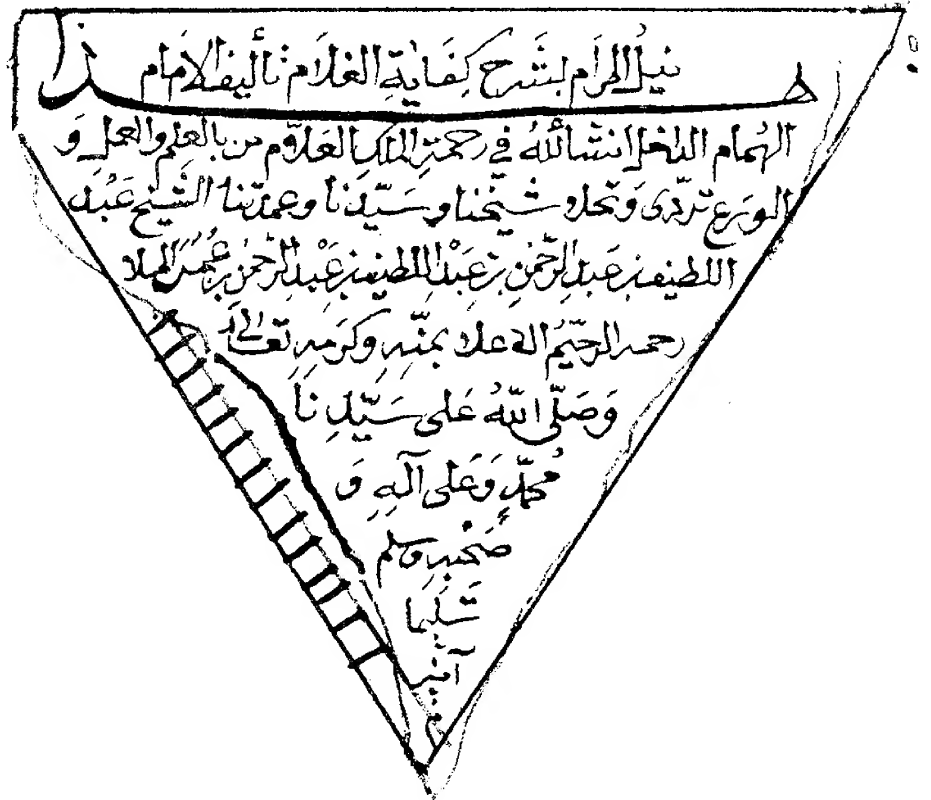 هذا
نيل المرام بشرح كفاية الغلام تأليف الامام
الهمام الداخل انشا الله في رحمة الملك العلام من بالعلم والعمل و
الورع تردى وتحلا شيخنا وسيدنا وعمدتنا الشيخ عبد
اللطيف بن عبد الرحمن بن عبد اللطيف بن عبد الرحمن بن عمر الملا
رحمه الرحيم الاه علا بمنه وكرمه تعالى
وَصَلَّى اللهُ عَلى سَيِّدِنا
محمدٍ وَعَلى آلهِ وَ
صَحْبهِ وسلم
تسليما
آمين
م